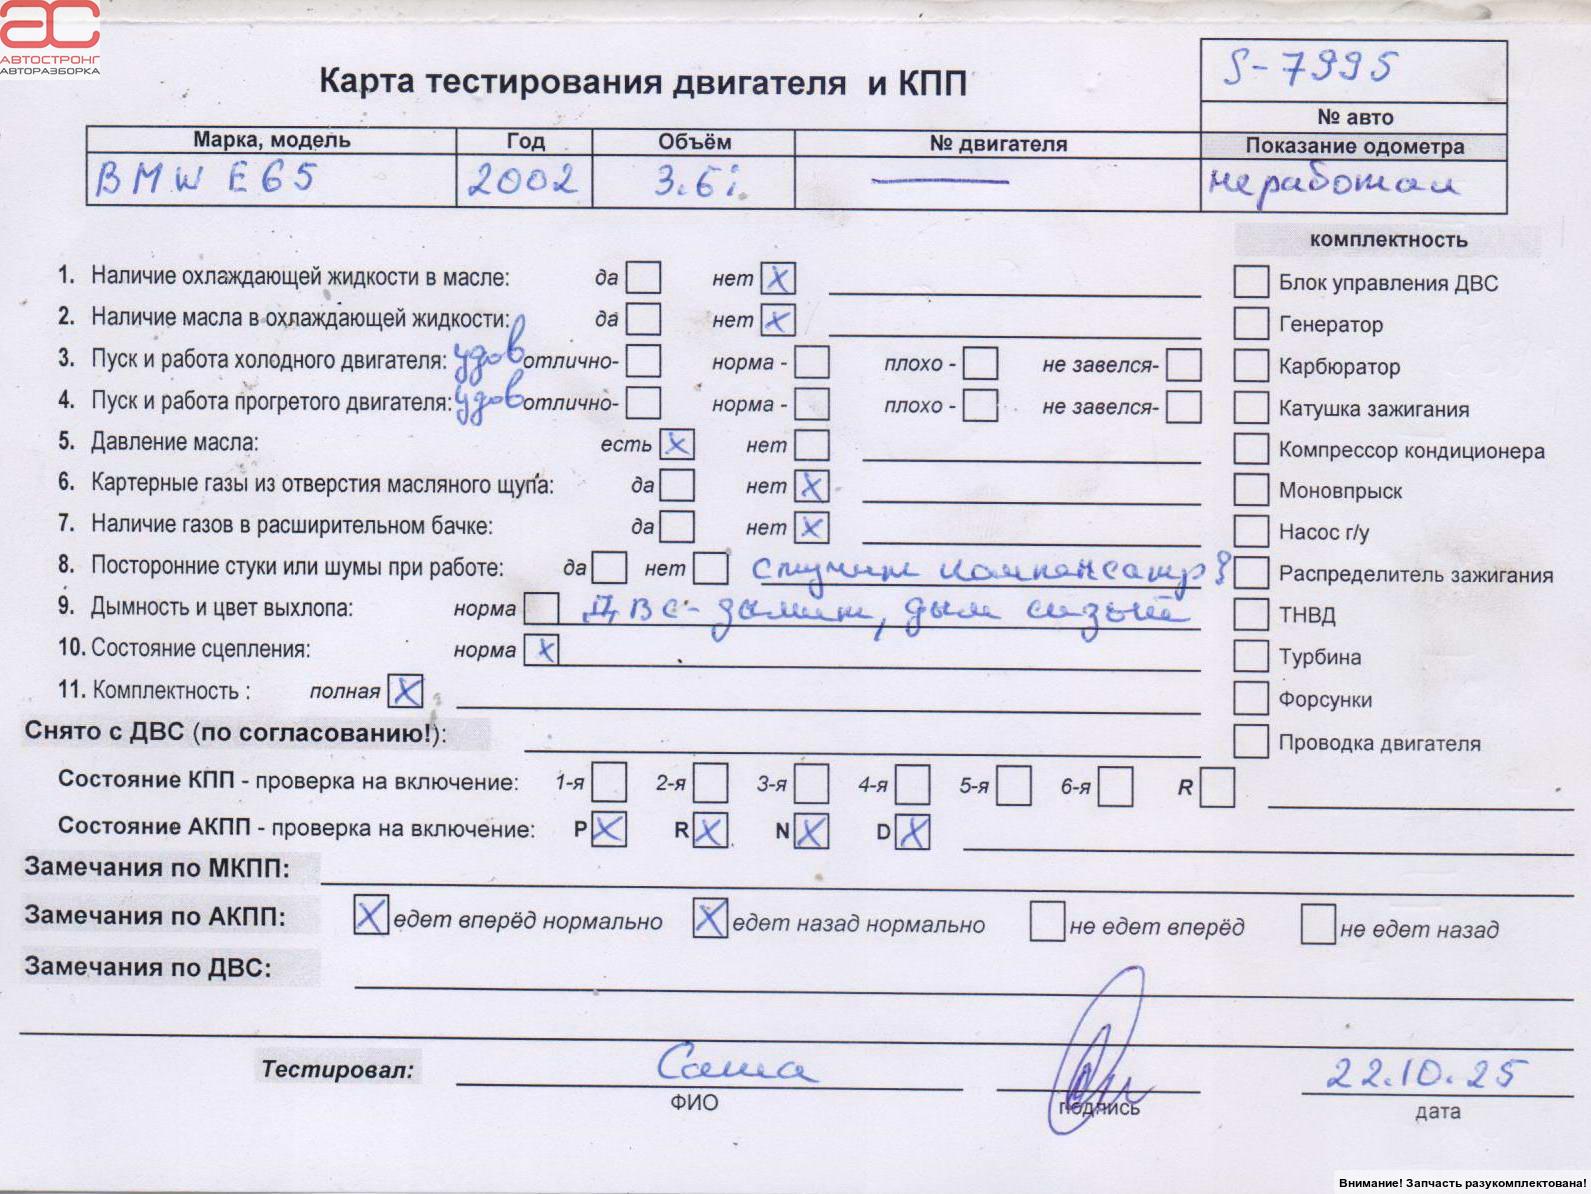 АС
АВТОСТРОНГ
АВТОРАЗБОРКА
S-7995
Карта тестирования двигателя и КПП
№ авто
Марка, модель Год Объём № двигателя Показание одометра
BMW E65 2002 3.6i — не работал
комплектность
1. Наличие охлаждающей жидкости в масле: да нет X Блок управления ДВС
2. Наличие масла в охлаждающей жидкости: да нет X Генератор
3. Пуск и работа холодного двигателя: удов отлично- норма - плохо - не завелся- Карбюратор
4. Пуск и работа прогретого двигателя: удов отлично- норма - плохо - не завелся- Катушка зажигания
5. Давление масла: есть X нет Компрессор кондиционера
6. Картерные газы из отверстия масляного щупа: да нет X Моновпрыск
7. Наличие газов в расширительном бачке: да нет X Насос г/у
8. Посторонние стуки или шумы при работе: да нет стучит Распределитель зажигания
9. Дымность и цвет выхлопа: норма ДВС-дымит, дым сизый ТНВД
10. Состояние сцепления: норма X Турбина
11. Комплектность : полная X Форсунки
Снято с ДВС (по согласованию!): Проводка двигателя
Состояние КПП - проверка на включение: 1-я 2-я 3-я 4-я 5-я 6-я R
Состояние АКПП - проверка на включение: P X R X N X D X
Замечания по МКПП:
Замечания по АКПП: X едет вперёд нормально X едет назад нормально не едет вперёд не едет назад
Замечания по ДВС:
Тестировал: Саша 22.10.25
ФИО подпись дата
Внимание! Запчасть разукомплектована!